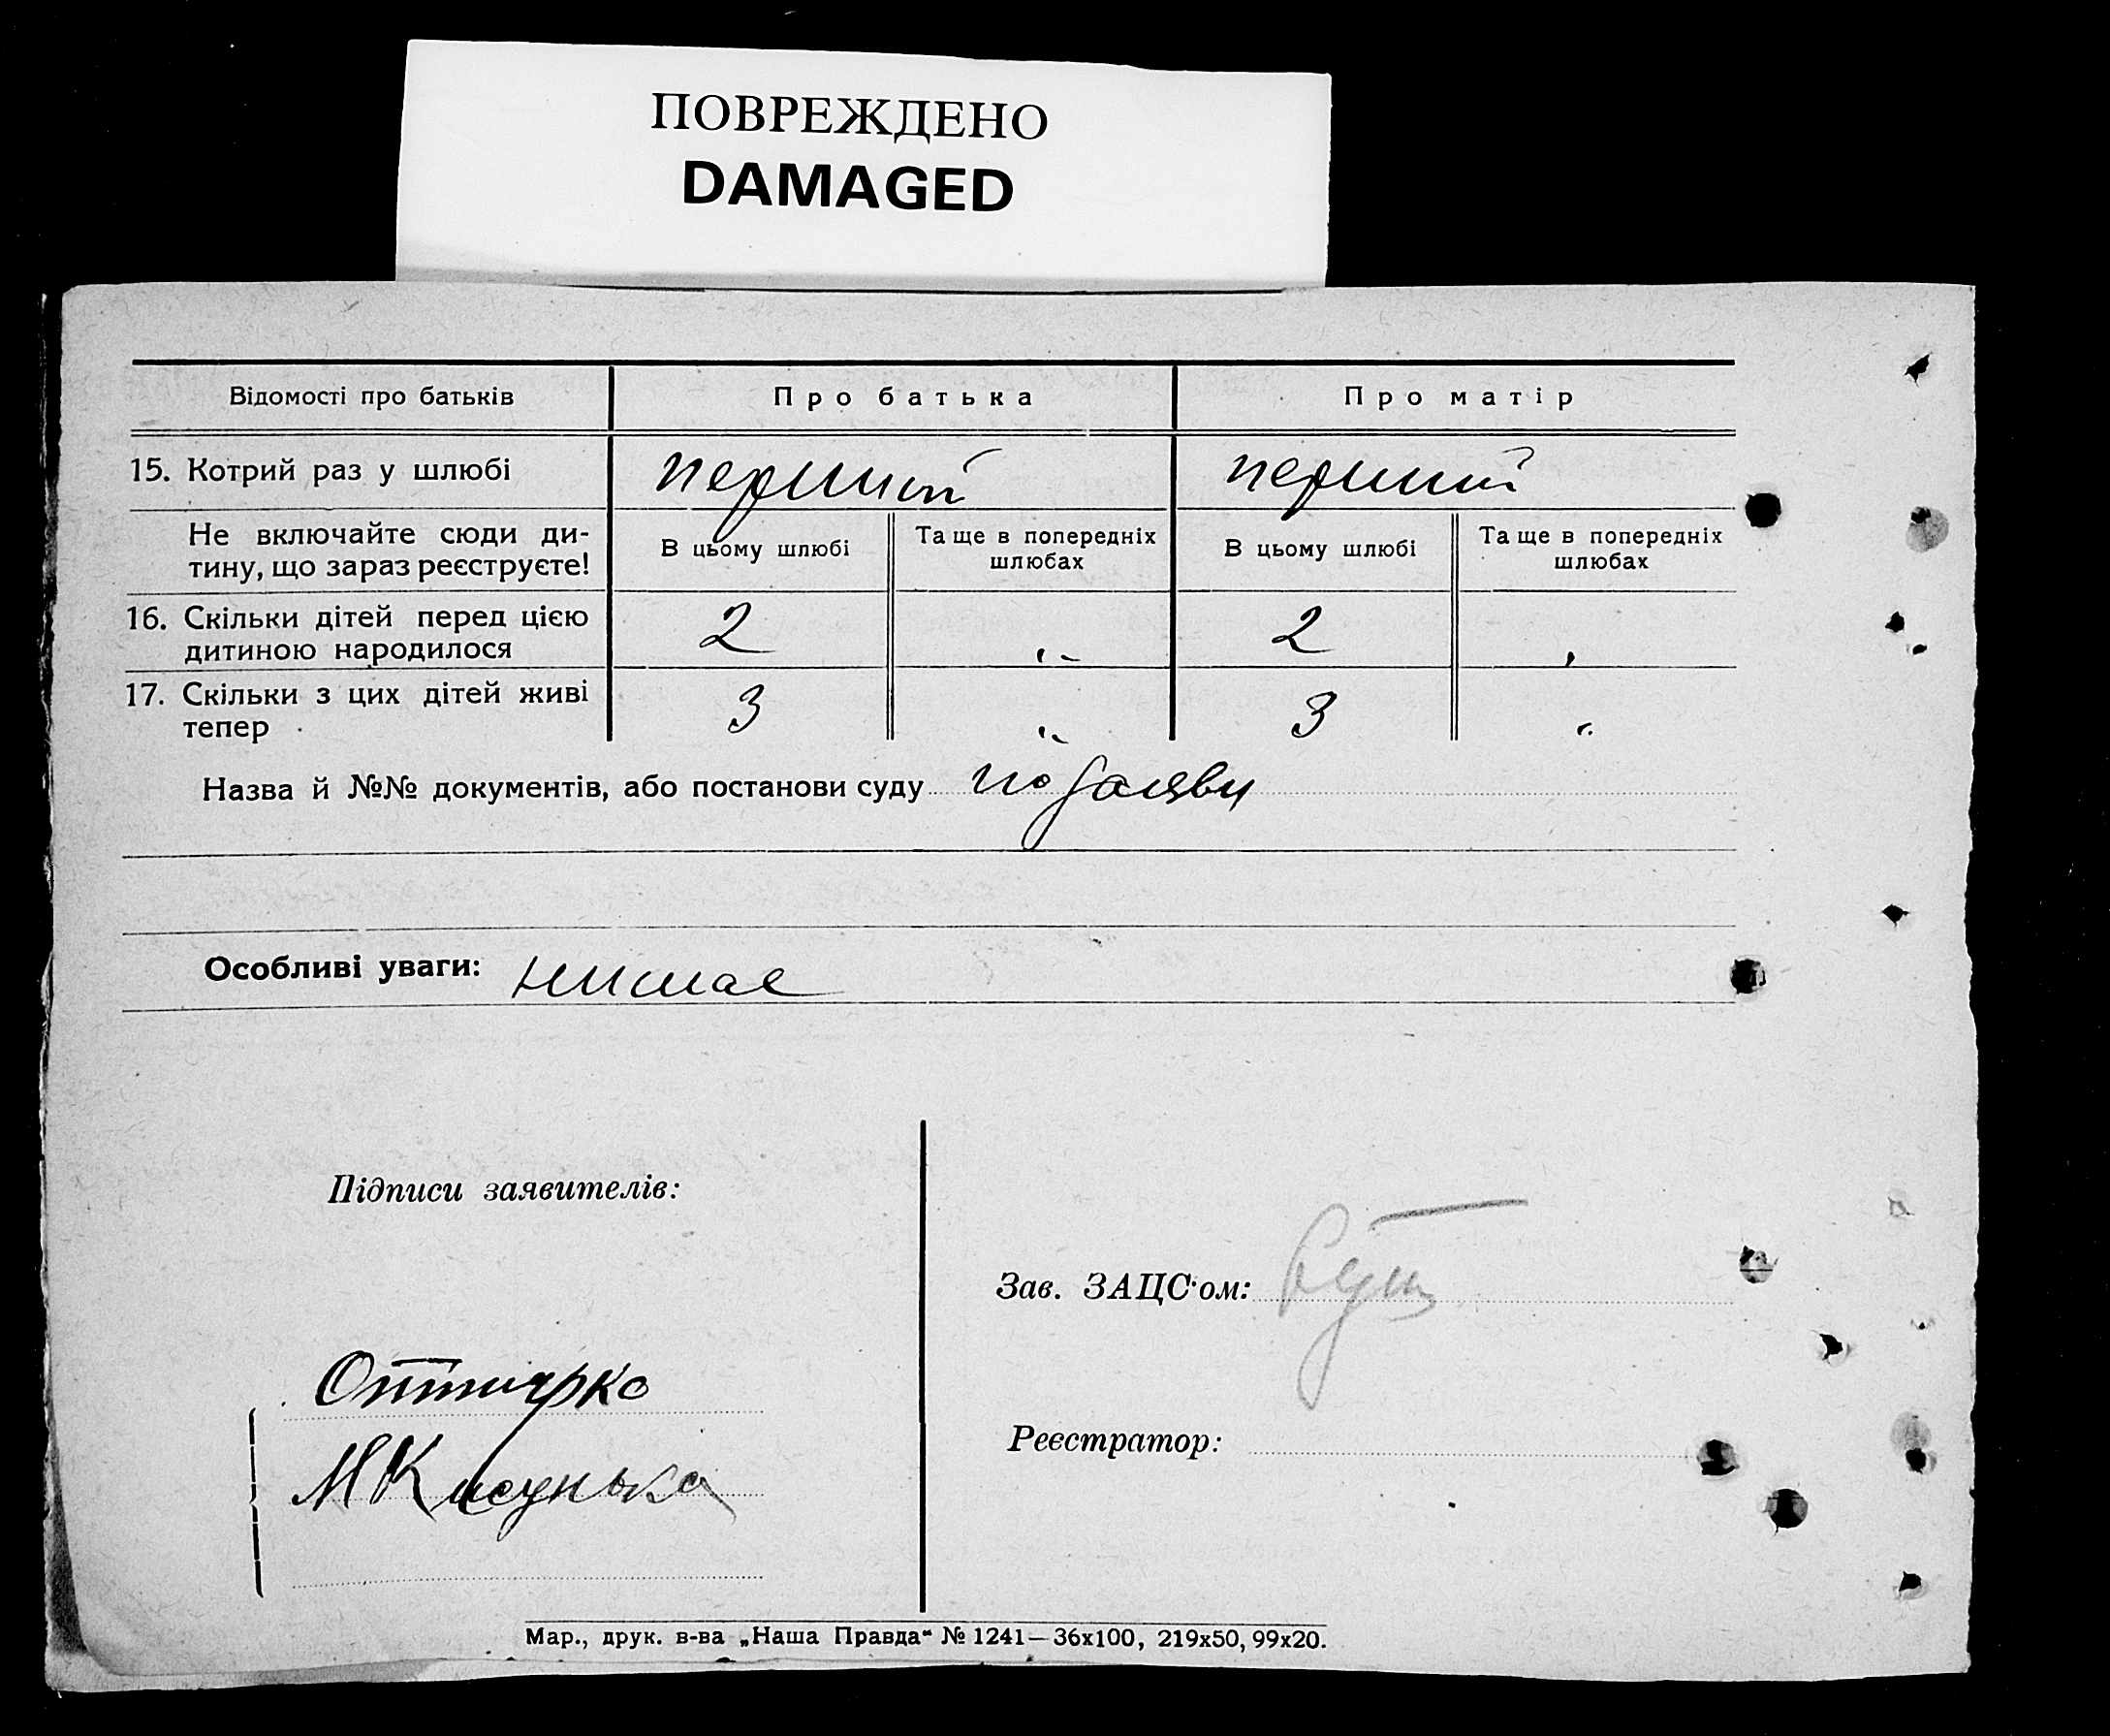 ПОВРЕЖДЕНО
DAMAGED
Відомості про батьків
Про батька
Про матір
15. Котрий раз у шлюбі
перший
перший
Не включайте сюди ди-
тину, що зараз реєструєте!
В цьому шлюбі
Та ще в попередніх
шлюбах
В цьому шлюбі
Та ще в попередніх
шлюбах
16. Скільки дітей перед цією
дитиною народилося
2
2
17. Скільки з цих дітей живі
тепер
3
3
Назва й №№ документів, або постанови суду по заяви
Особливі уваги: нимае
Підписи заявителів:
Зав. ЗАЦС'ом:
Реєстратор:
Мар., друк. в-ва „Наша Правда“ № 1241—36х100, 219х50, 99х20.